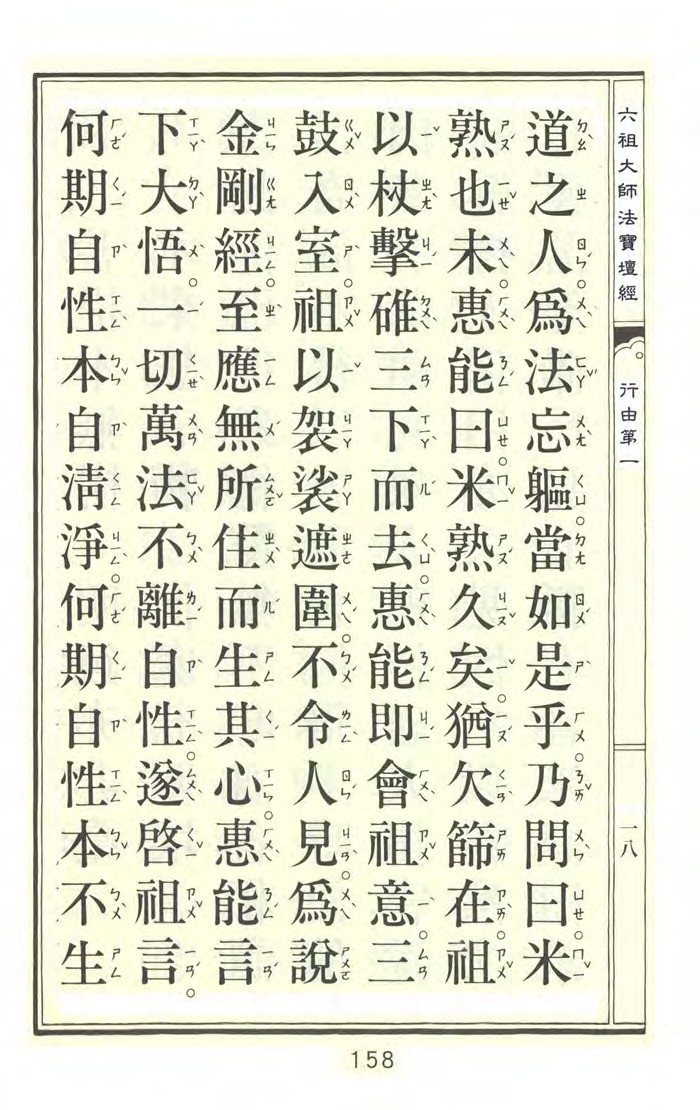 六祖大師法寶壇經 行由第一 一八
道之人爲法忘軀。當如是乎。乃問曰。米
熟也未。惠能曰。米熟久矣。猶欠篩在。祖
以杖擊碓三下而去。惠能即會祖意。三
鼓入室。祖以袈裟遮圍。不令人見。爲說
金剛經。至應無所住而生其心。惠能言
下大悟。一切萬法不離自性。遂啓祖言。
何期自性本自清淨。何期自性本不生
158